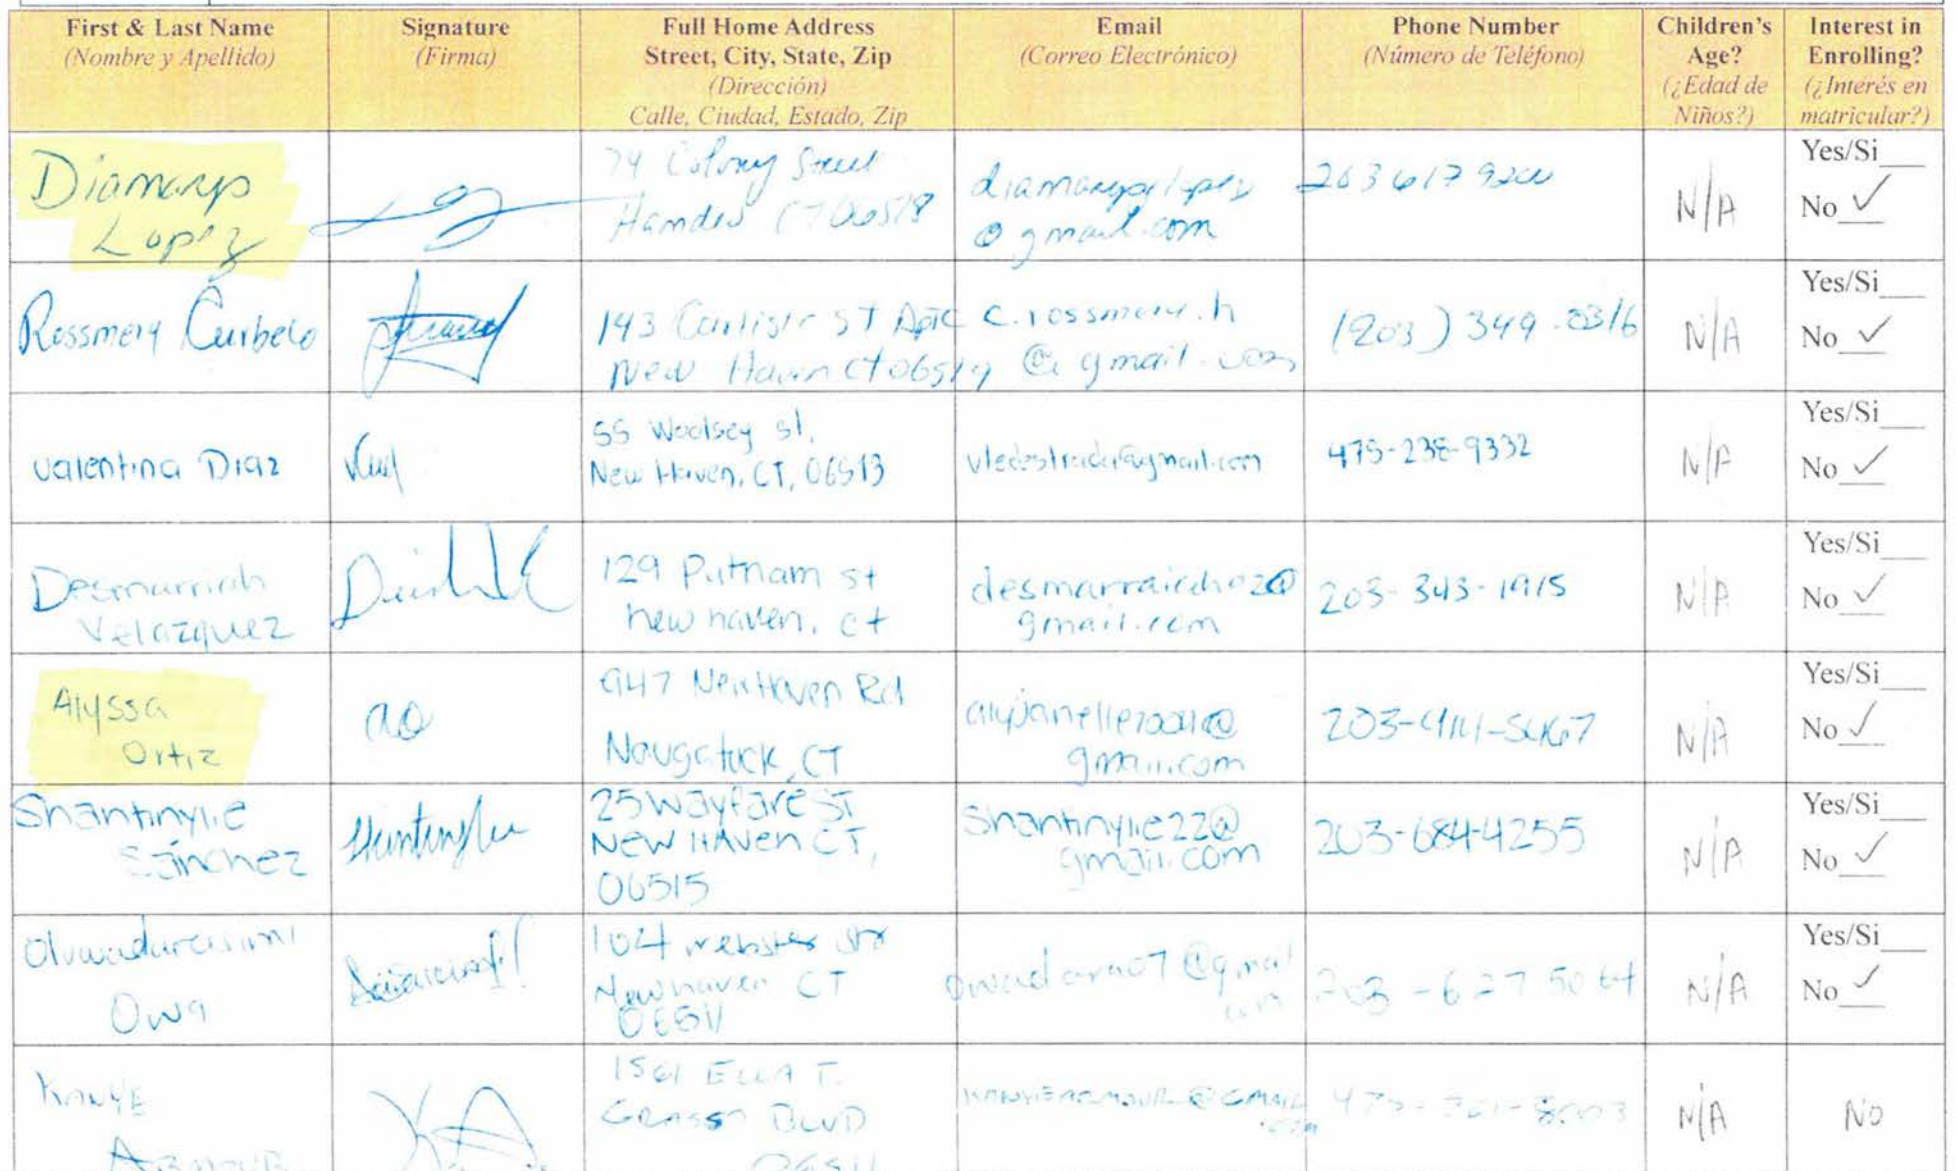 First & Last Name
(Nombre y Apellido)
Signature
(Firma)
Full Home Address
Street, City, State, Zip
(Dirección)
Calle, Ciudad, Estado, Zip
Email
(Correo Electrónico)
Phone Number
(Número de Teléfono)
Children's
Age?
(¿Edad de
Niños?)
Interest in
Enrolling?
(¿Interés en
matricular?)
Diamarys
Lopez
74 Colony Street
Hamden CT 06518
@gmail.com
N/A
Yes/Si___
No ✓
Rossmery Curbelo
143 Carlisle ST Apt C
New Haven CT 06519
c.rossmery.h
@gmail.com
(203) 349-0316
N/A
Yes/Si___
No ✓
Valentina Diaz
55 Woolsey st,
New Haven, CT, 06513
475-238-9332
N/A
Yes/Si___
No ✓
Desmarriah
Velazquez
129 Putnam st
new haven, ct
gmail.com
203-343-1915
N/A
Yes/Si___
No ✓
Alyssa
Ortiz
AO
947 New Haven Rd
Naugatuck, CT
alyjanelle2004@
gmail.com
N/A
Yes/Si___
No ✓
Shantinylie
Sánchez
25 Wayfare ST
New Haven CT,
06515
Shantinylie22@
gmail.com
203-684-4255
N/A
Yes/Si___
No ✓
Oluwadarasimi
Owa
104 webster str
New haven CT
06511
owadara07@gmail
.com
203-627 5064
N/A
Yes/Si___
No ✓
Kanye
Armour
KA
1561 Ella T.
Grasso Blvd
06511
kanyearmour@gmail
.com
N/A
No